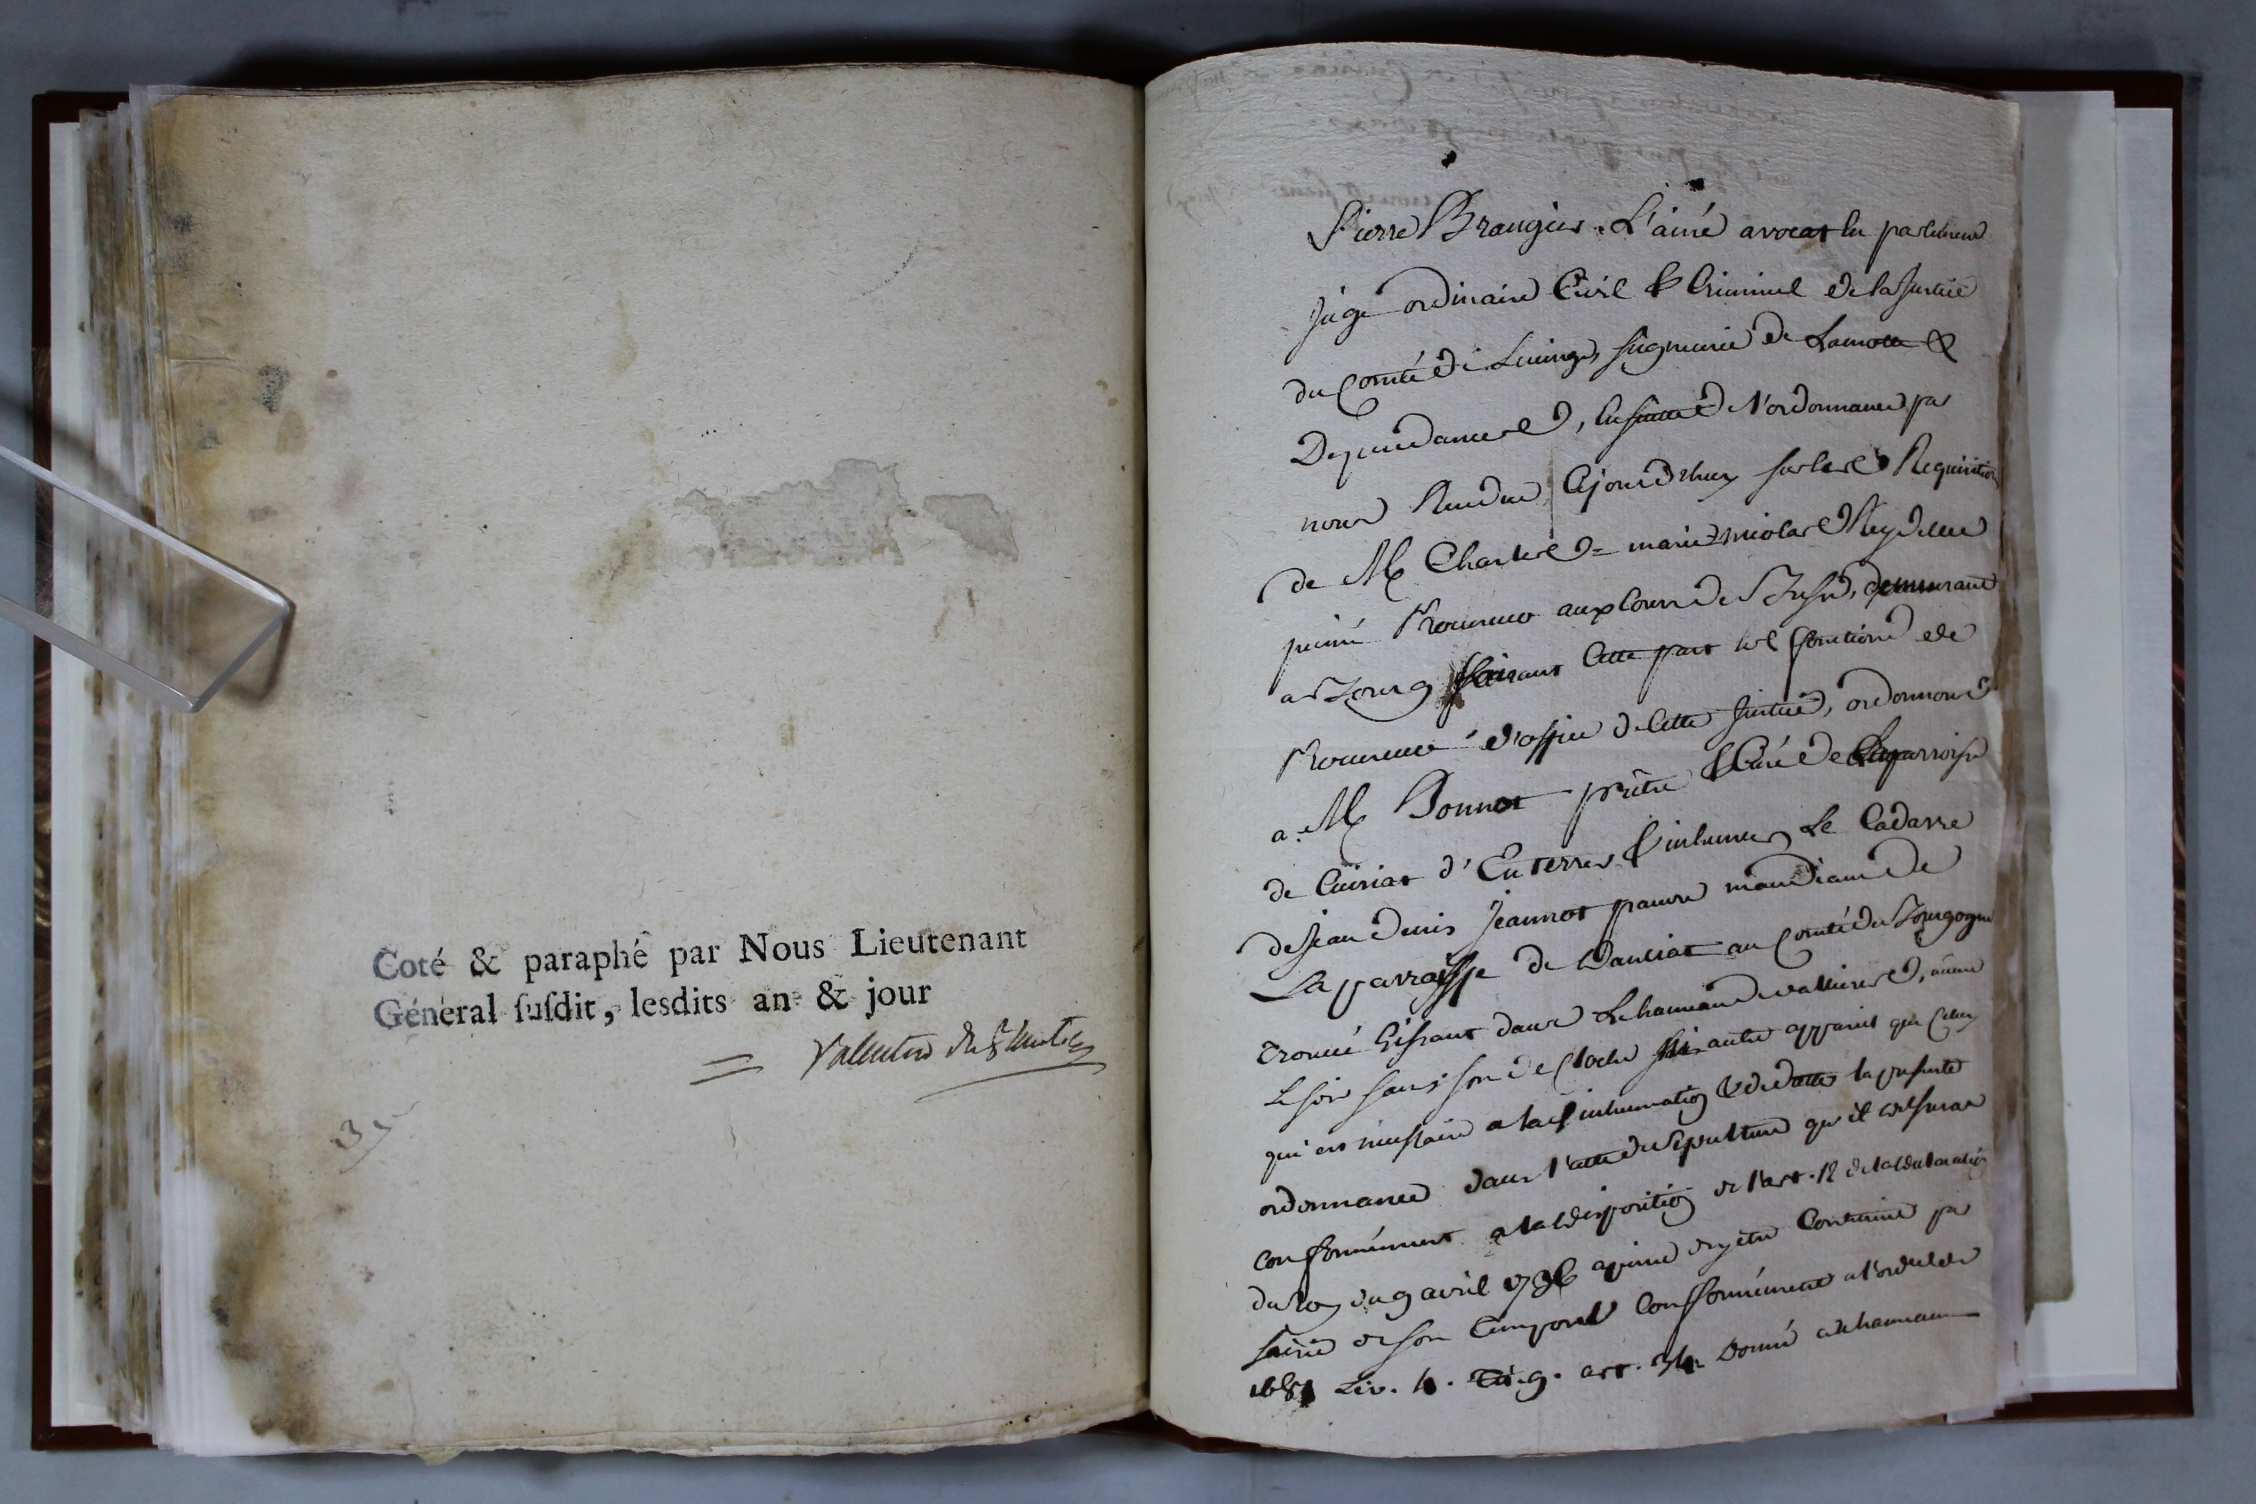 Coté & paraphé par Nous Lieutenant
Général ſuſdit, lesdits an & jour
Pierre Brangier L'ainé avocat en parlement
Juge ordinaire Civil & Criminel de la Justice
du Comté de seigneurie de Lamotte &
Dependances, Ensuitte de l'ordonnance par
nous Rendue Cejourd'huy sur les Requisition
de Me Charles = marie nicolas Reydellet
puiné Procureur aux Cours de Bresse, demeurant
a Bourg faisant Cette part les fonctions de
Procureur d'office de Cette Justice, ordonnons
a Me Bonnot prêtre & Curé de La parroisse
de Cuisiat d'Enterrer & inhumer Le Cadavre
de Jean Denis Jeannot pauvre mandiant de
La parroisse de Danciat au Comté de Bourgogne
trouvé Gissant dans Le hameau de vallieres,
Le soir sans son de Cloche ni autre apparat que Celuy
qui est necessaire a lad inhumation & de datter la presente
ordonnance dans l'acte de Sepulture qu'il
conformément a la disposition de l'art. 12 de la declaration
du Roy du 9 avril 1736 a peine d'y etre Contraint par
saisie de son temporel Conformément a l'ord. de
1681 Liv. 4. Tit. 9. art. 34. Donné au hameau